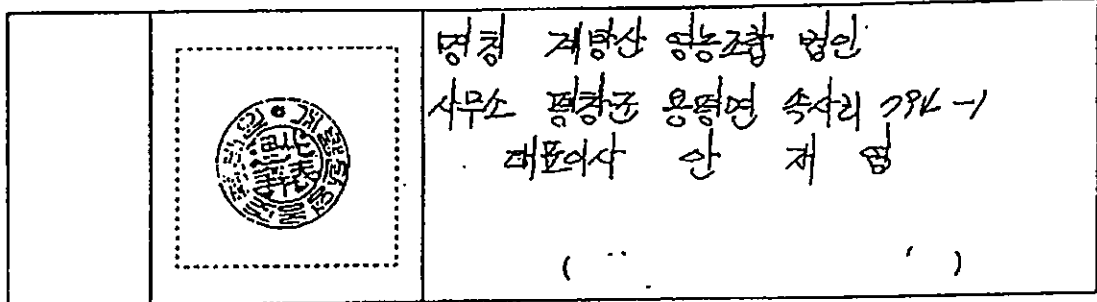 명칭 계방산 영농조합 법인
사무소 평창군 용평면 속사리 794-1
대표이사 안 재 영
( )